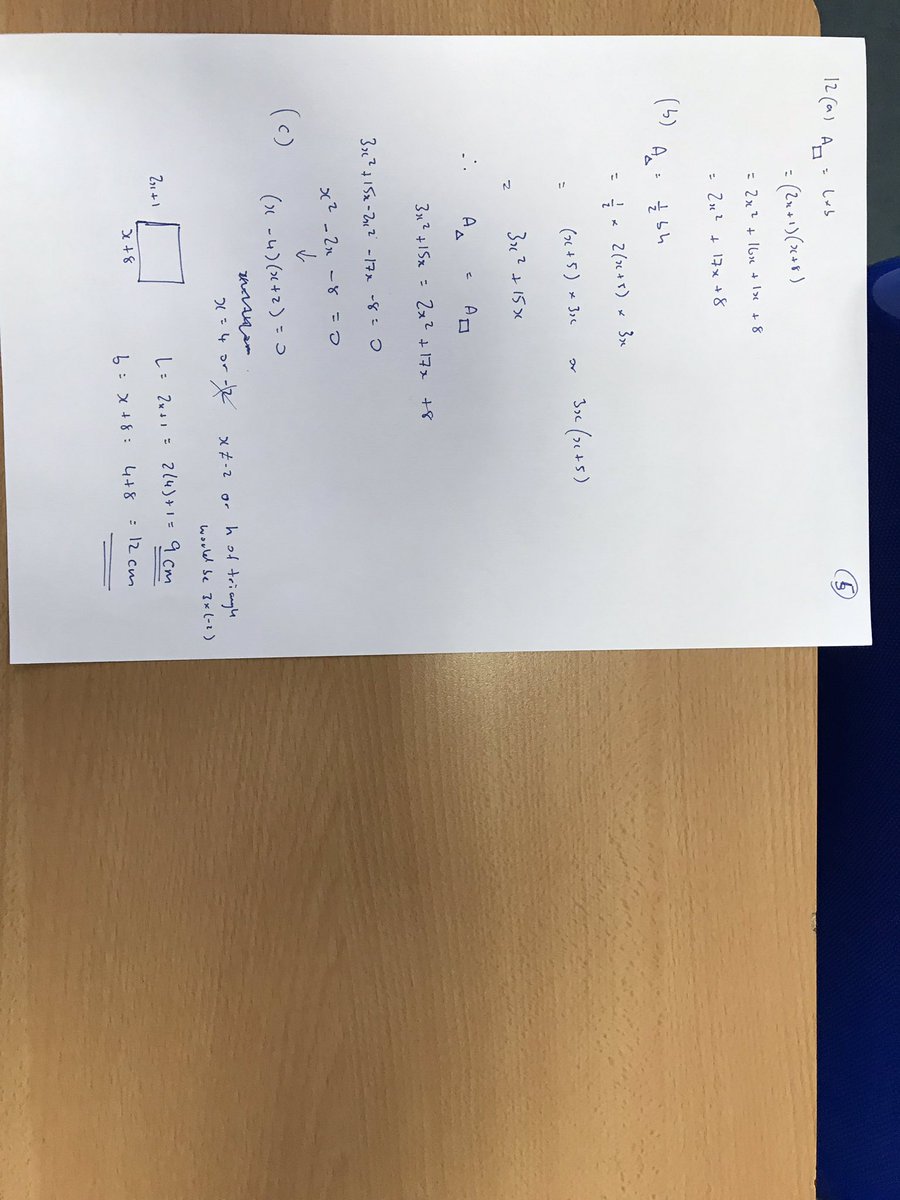 12(a) A□ = l×b
= (2x+1)(x+8)
= 2x² + 16x + 1x + 8
= 2x² + 17x + 8
(b) A△ = ½ bh
= ½ × 2(x+5) × 3x
= (x+5) × 3x or 3x(x+5)
= 3x² + 15x
∴ A△ = A□
3x² + 15x = 2x² + 17x + 8
3x² + 15x - 2x² - 17x - 8 = 0
x² - 2x - 8 = 0
↓
(c) (x - 4)(x + 2) = 0
x = 4 or -2 x ≠ -2 or h of triangle
would be 3×(-2)
2x+1
x+8
l = 2x+1 = 2(4)+1 = 9cm
b = x+8 = 4+8 = 12cm
5